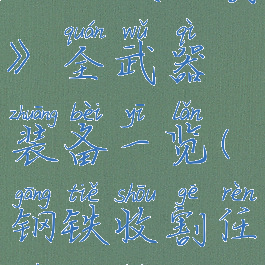 quán wǔ qì
》全武器
zhuāng bèi yī lǎn
装备一览(
gāng tiě shōu gē rèn
钢铁收割任